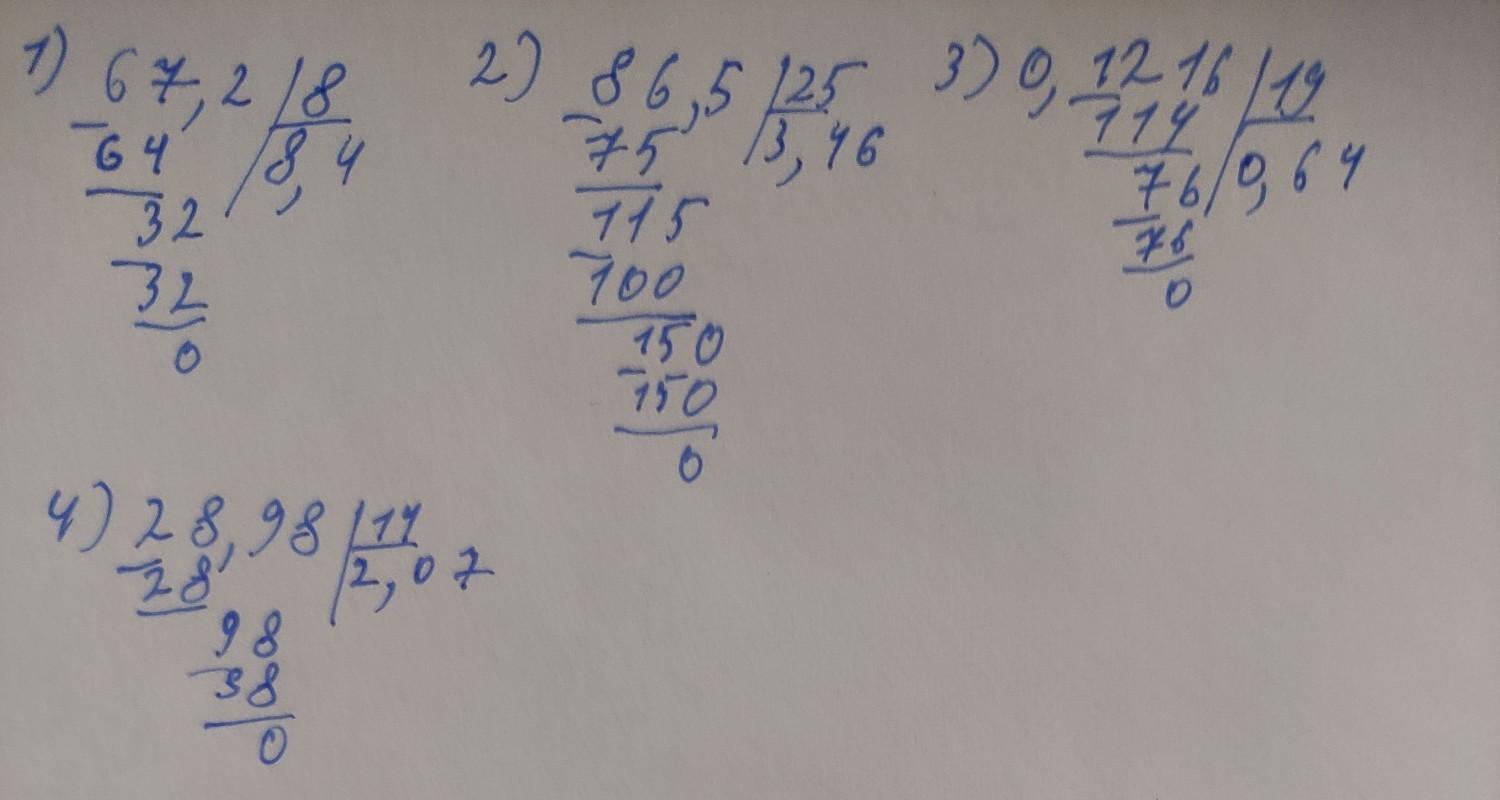 1) 67,2 8
64 8,4
32
32
0
2) 86,5 25
75 3,46
115
100
150
150
0
3) 0,1216 19
114 0,64
76
76
0
4) 28,98 14
28 2,07
98
98
0